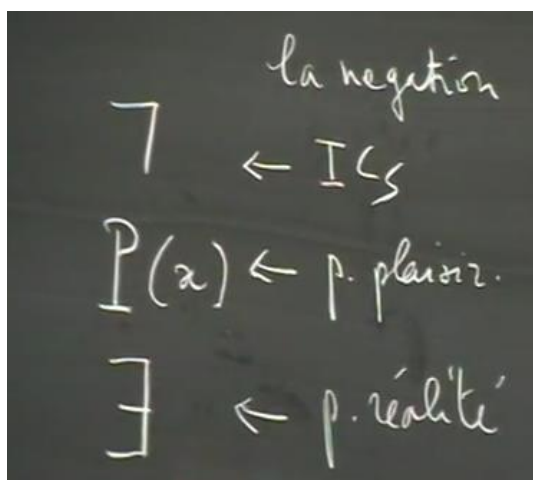 la negation
ㄱ ← ICS
P(x) ← p. plaisir.
∃ ← p. réalité